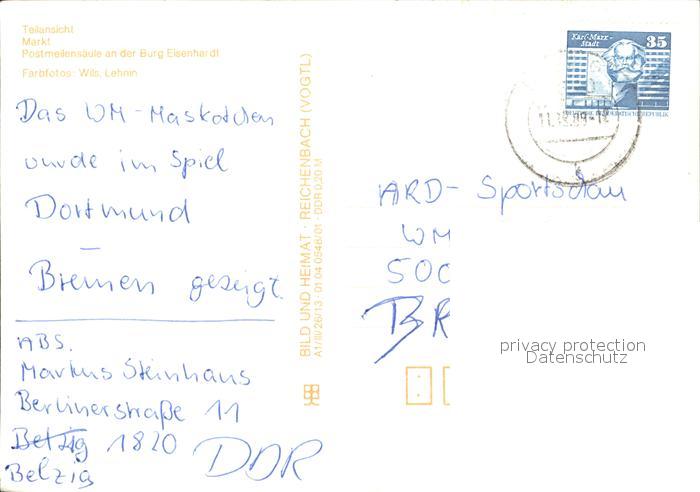 Teilansicht
Markt
Postmeilensäule an der Burg Eisenhardt
Farbfotos: Wils, Lehnin
Das WM-Maskottchen
wurde im Spiel
Dortmund
–
Bremen gezeigt.
ABS.
Markus Steinhaus
Berlinerstraße 11
Belzig 1820
Belzig
DDR
BILD UND HEIMAT · REICHENBACH (VOGTL)
A1/III/26/13 · 01 04 0546/01 · DDR 0,20 M
Karl-Marx-
Stadt
35
DEUTSCHE DEMOKRATISCHE REPUBLIK
ARD- Sportschau
WM
500
BR
privacy protection
Datenschutz